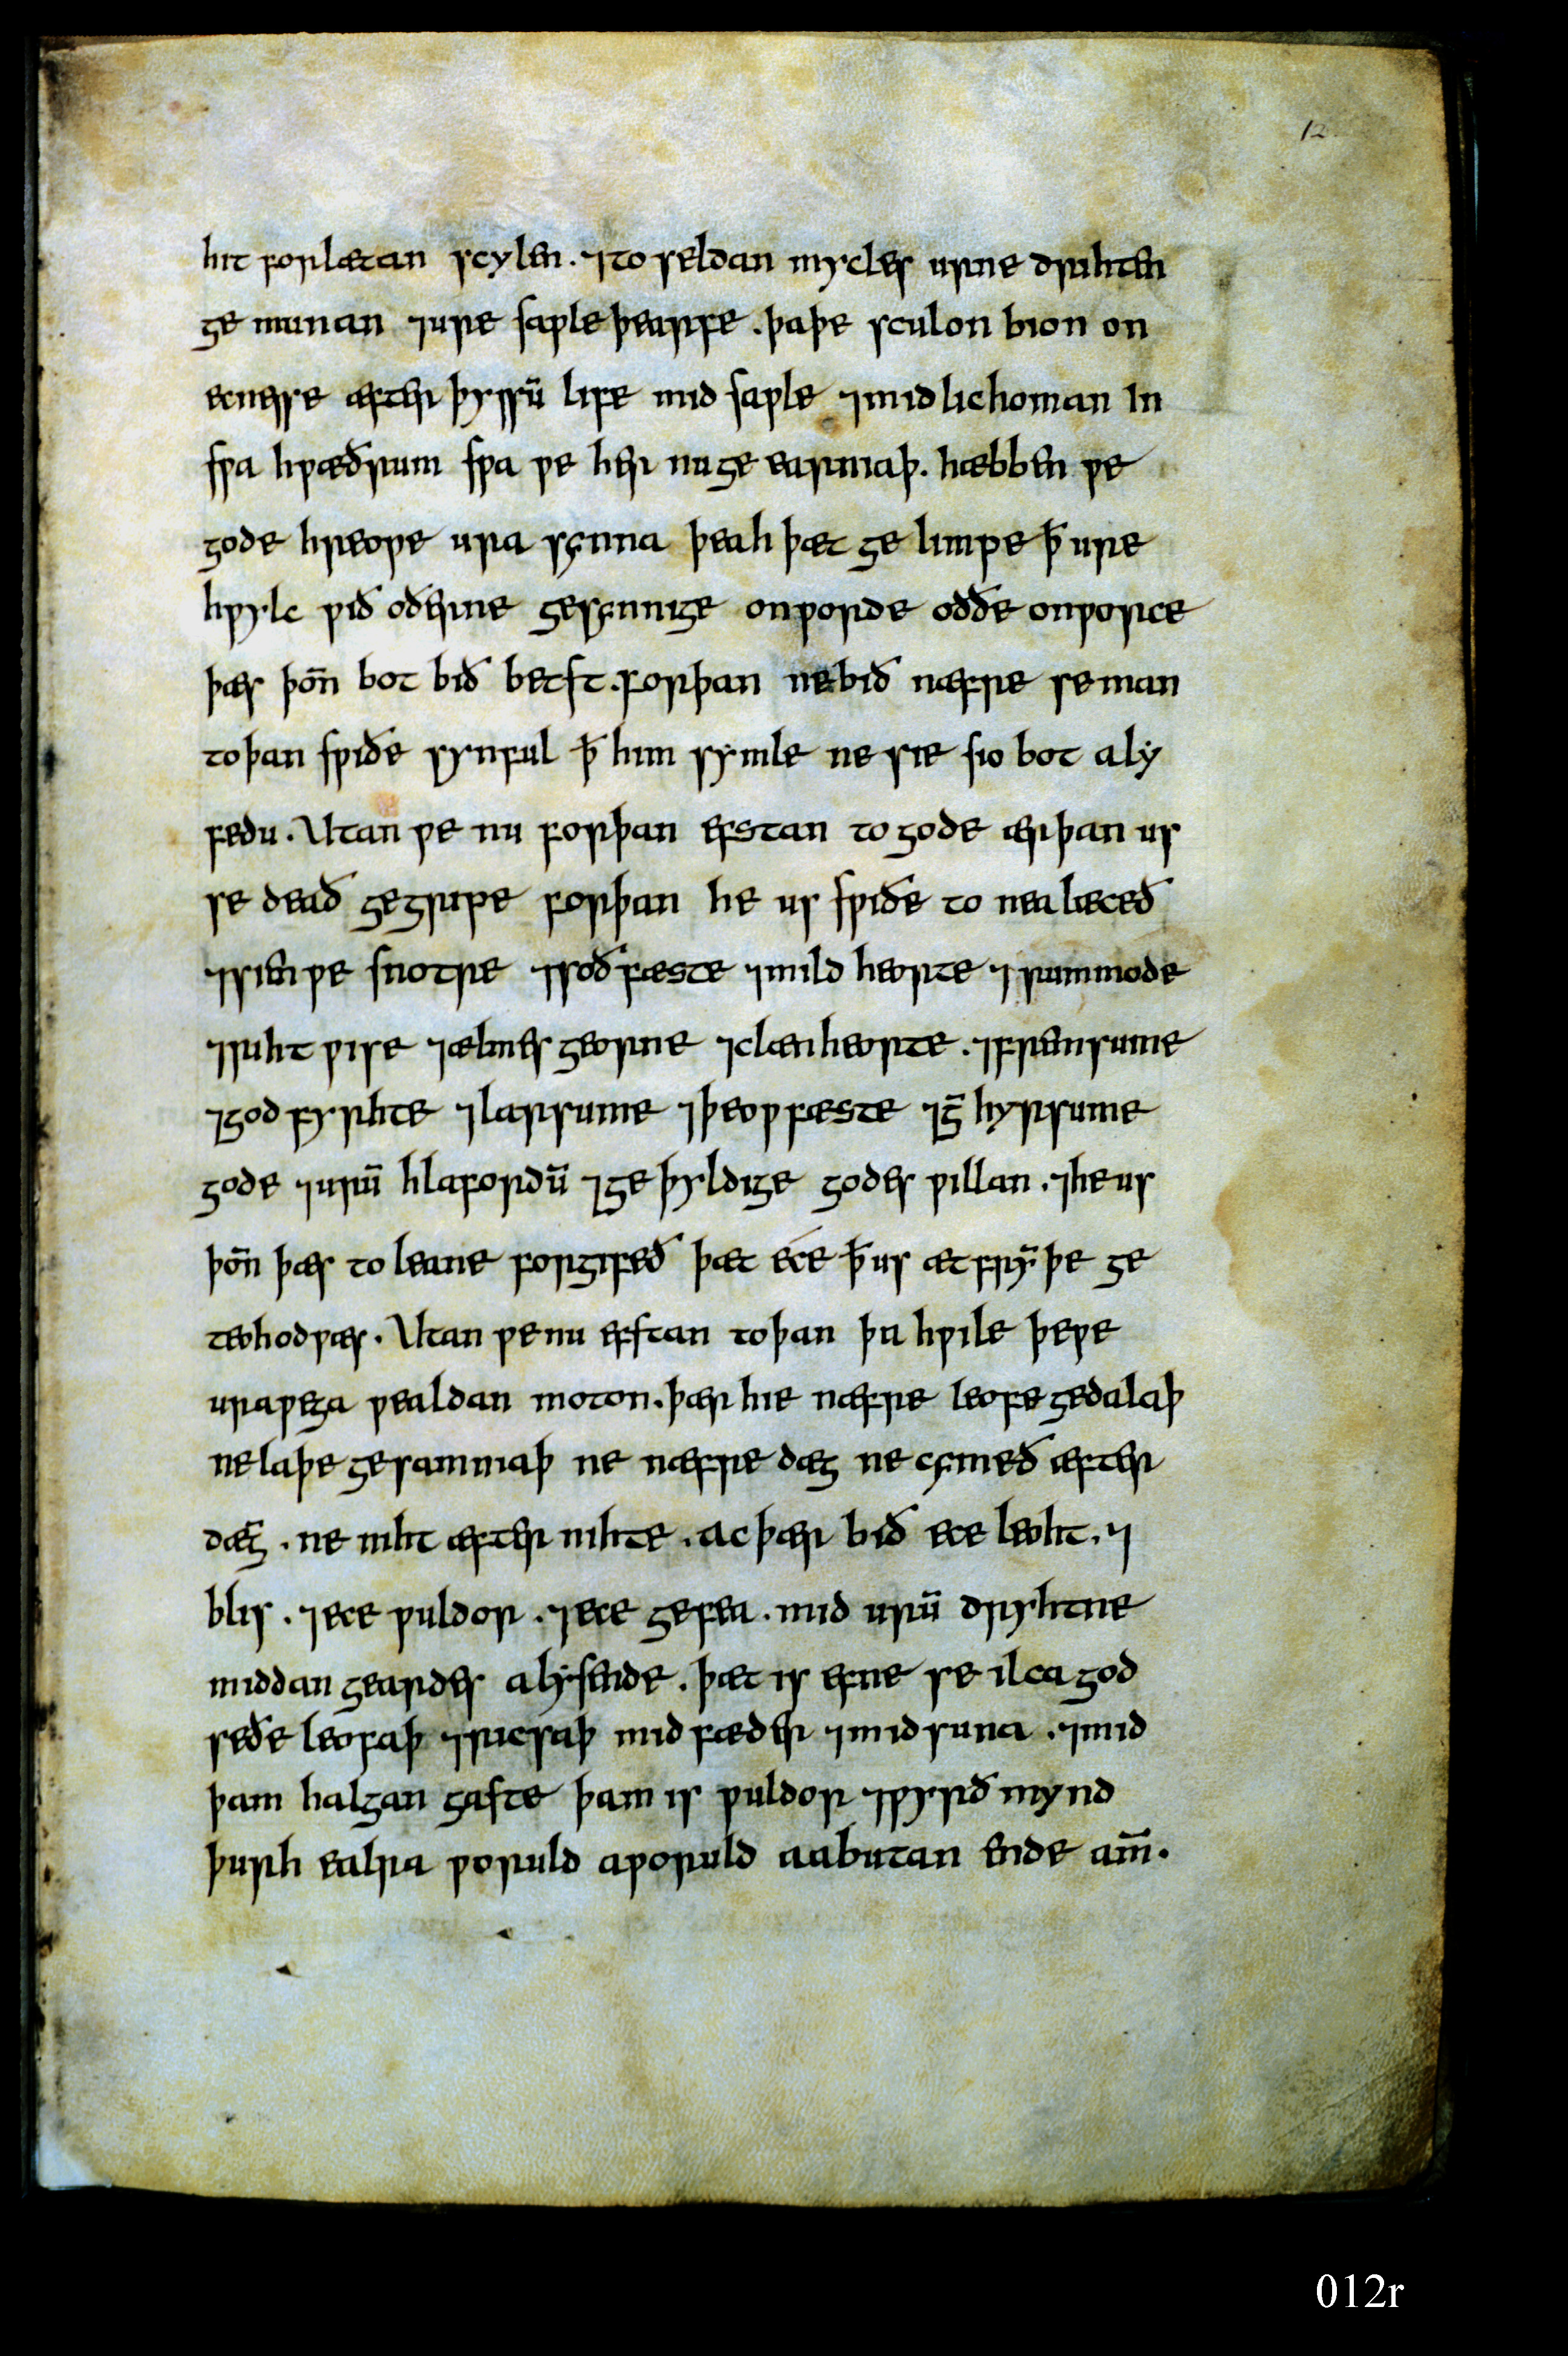 12
hit forlætan scylen. ⁊to seldan mycles urne drihten
ge munan ⁊ure saƿle þearfe. þaþe sculon bion on
ecnesse æfter þyssū life mid saƿle ⁊mid lichoman In
sƿa hƿæðrum sƿa ƿe her nuge earniaþ. hæbben ƿe
gode hreoƿe ura synna þeah þæt ge limpe ꝥ ure
hƿylc ƿið oðerne gesynnige onƿorde oððe onƿorce
þæs þoñ bot bið betst. forþan nebið næfre seman
toþan sƿiðe synful ꝥ him symle ne sie sio bot alẏ
fedu. Utan ƿe nu forþan efstan to gode ærþan us
se deað gegripe forþan he us sƿiðe to nealæceð
⁊sien ƿe snotre ⁊soðfæste ⁊mild heorte ⁊rummode
⁊riht ƿise ⁊ælmes georne ⁊clænheorte. ⁊fremsume
⁊god fyrhte ⁊larsume ⁊þeoƿfæste ⁊ḡ hyrsume
gode ⁊urū hlafordū ⁊ge þyldige godes ƿillan. ⁊he us
þoñ þæs to leane forgifeð þæt éce ꝥ us æt frẏ̄ þe ge
teohod ƿæs. Utan ƿe nu efstan toþan þa hƿile þeƿe
uraƿega ƿealdan moton. þær hie næfre leofe gedalaþ
ne laþe gesamniaþ ne næfre dæg ne cymeð æfter
dæḡ. ne niht æfter nihte. ac þær bið ece leoht. ⁊
blis. ⁊ece ƿuldor. ⁊ece gefea. mid urū dryhtne
middan geardes alẏsende. þæt is efne se ilca god
seðe leofaþ ⁊ricsaþ mid fæder ⁊mid suna. ⁊mid
þam halgan gaste þam is ƿuldor ⁊ƿyrð mynd
þurh ealra ƿoruld aƿoruld aabutan ende am̄.
012r